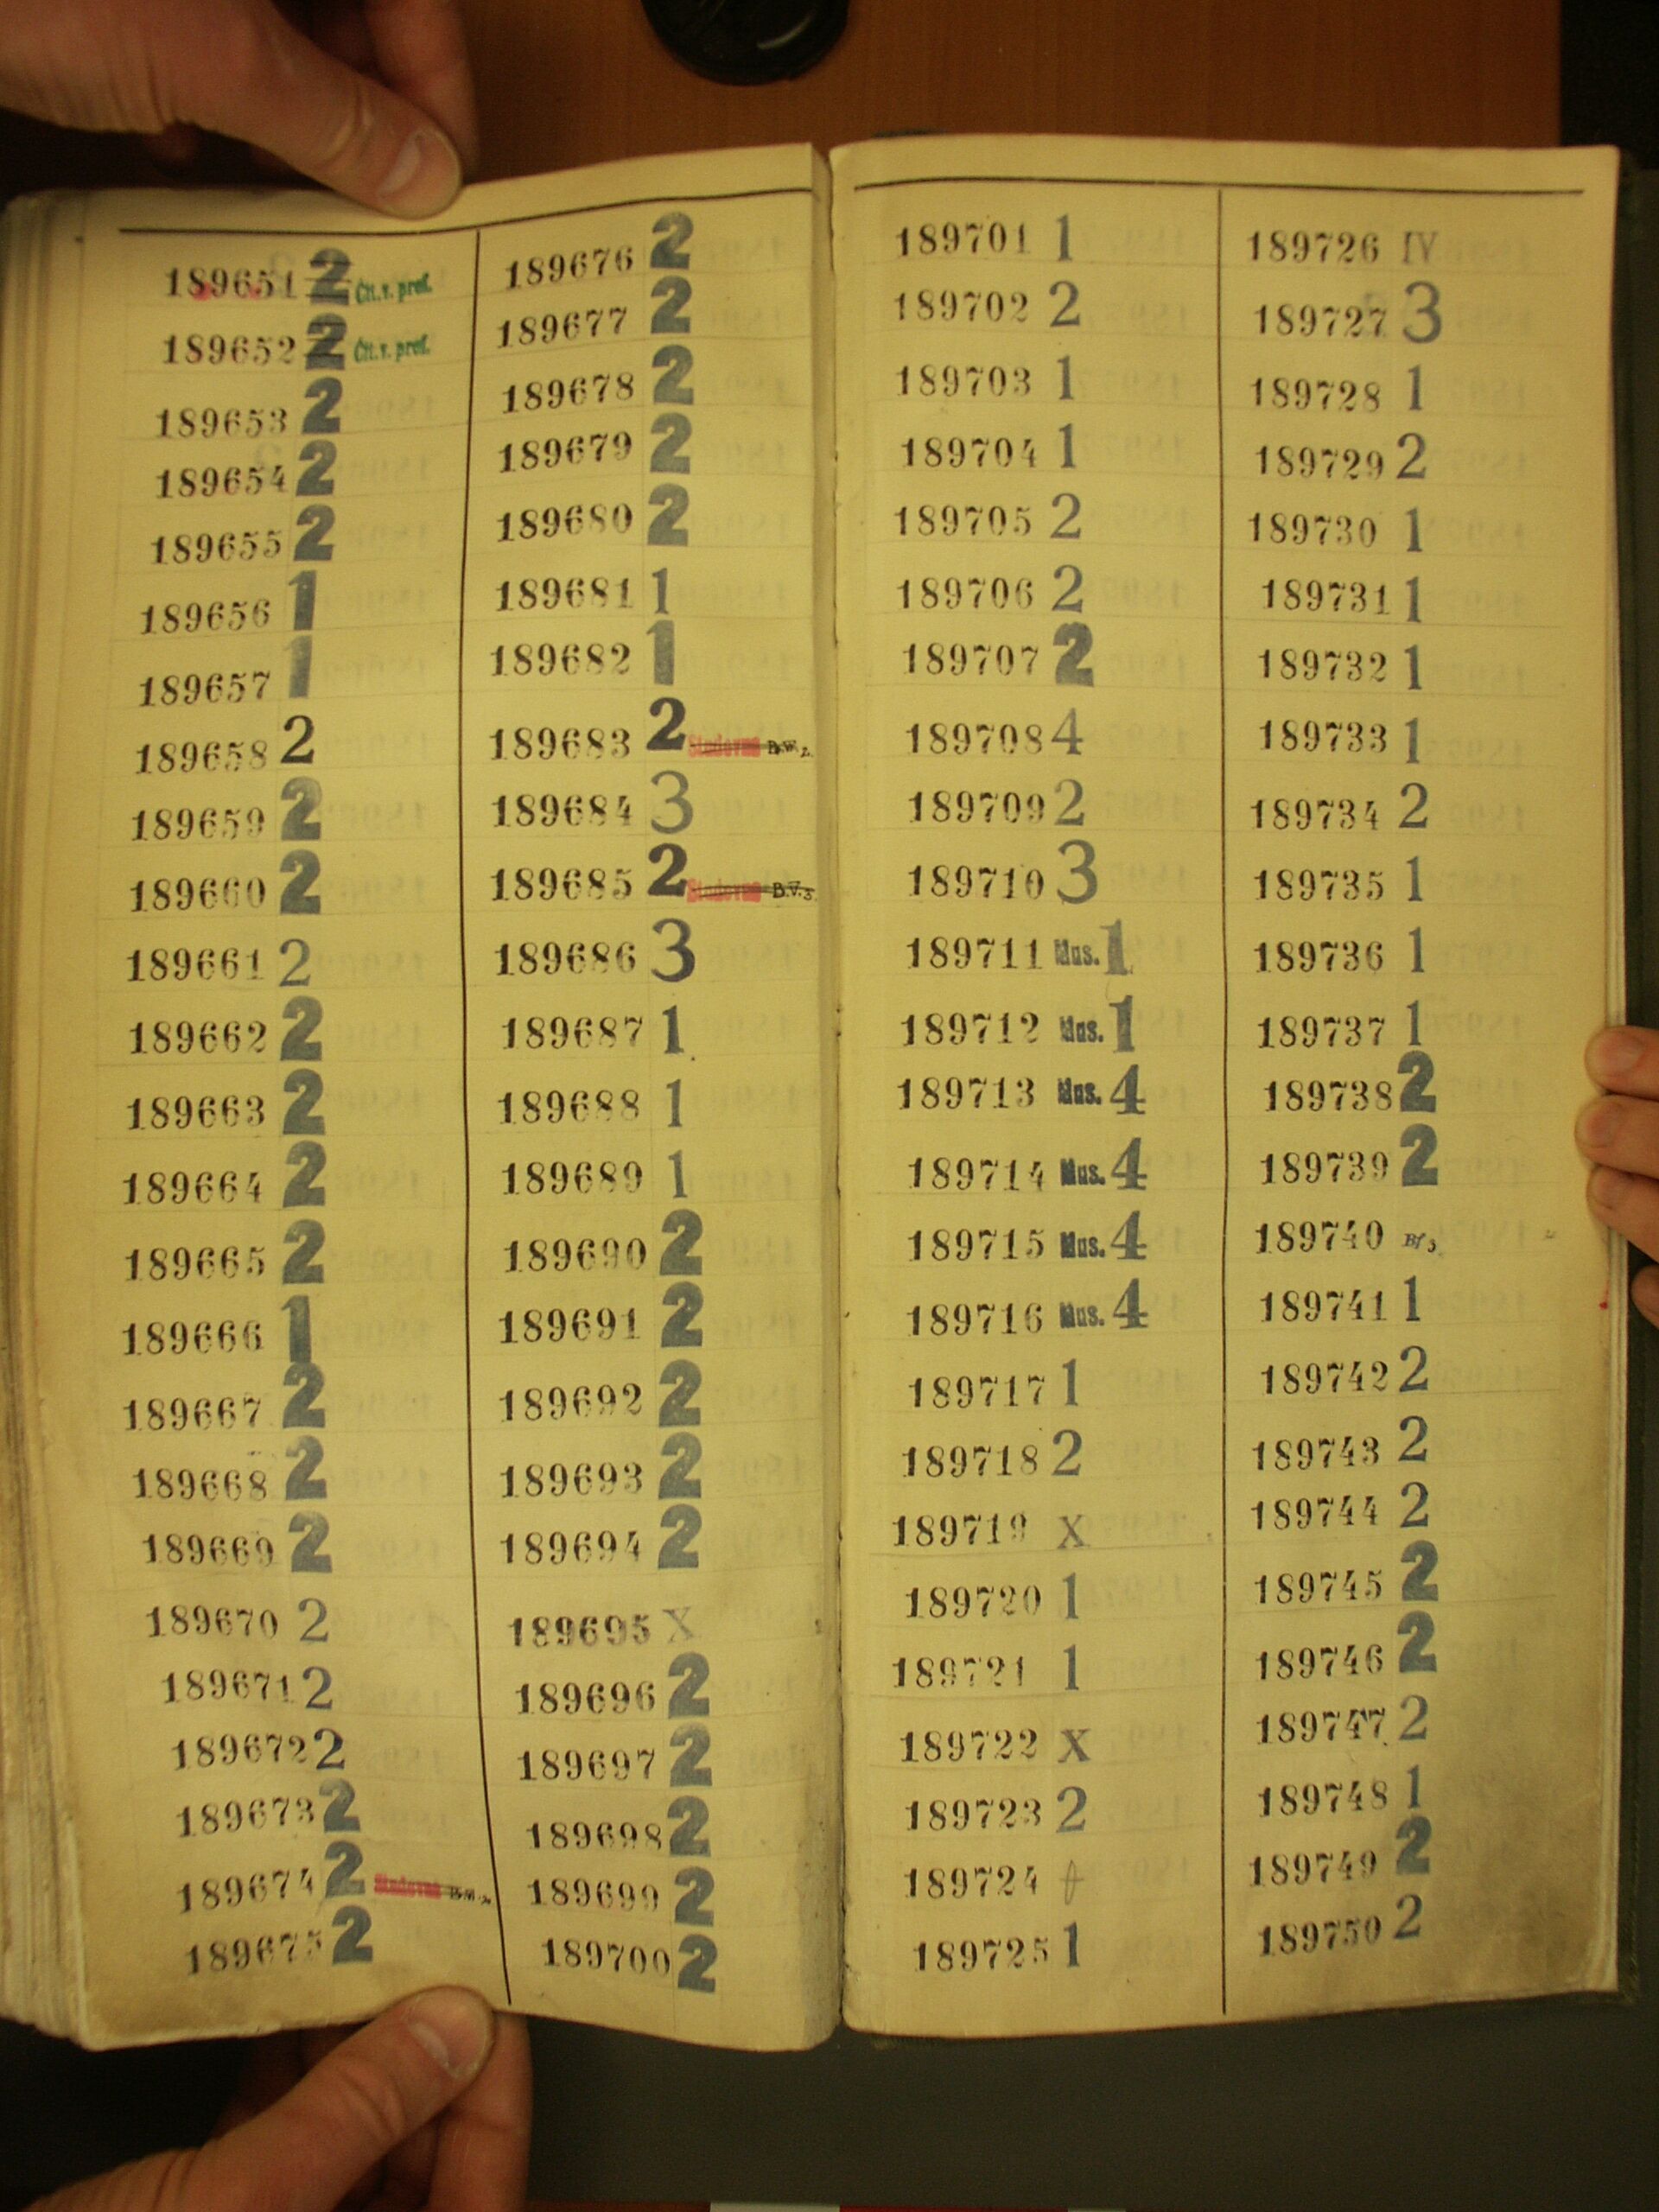 189651 2 Čít. v. prof.
189652 2 Čít. v. prof.
189653 2
189654 2
189655 2
189656 1
189657 1
189658 2
189659 2
189660 2
189661 2
189662 2
189663 2
189664 2
189665 2
189666 1
189667 2
189668 2
189669 2
189670 2
189671 2
189672 2
189673 2
189674 2
189675 2
189676 2
189677 2
189678 2
189679 2
189680 2
189681 1
189682 1
189683 2
189684 3
189685 2 B.V.3
189686 3
189687 1
189688 1
189689 1
189690 2
189691 2
189692 2
189693 2
189694 2
189695 X
189696 2
189697 2
189698 2
189699 2
189700 2
189701 1
189702 2
189703 1
189704 1
189705 2
189706 2
189707 2
189708 4
189709 2
189710 3
189711 Mus. 1
189712 Mus. 1
189713 Mus. 4
189714 Mus. 4
189715 Mus. 4
189716 Mus. 4
189717 1
189718 2
189719 X
189720 1
189721 1
189722 X
189723 2
189724
189725 1
189726 IV
189727 3
189728 1
189729 2
189730 1
189731 1
189732 1
189733 1
189734 2
189735 1
189736 1
189737 1
189738 2
189739 2
189740
189741 1
189742 2
189743 2
189744 2
189745 2
189746 2
189747 2
189748 1
189749 2
189750 2